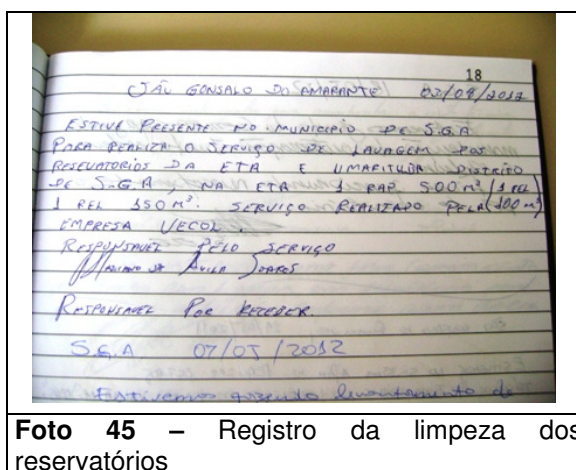 18
SÃO GONSALO DO AMARANTE 02/04/2012
ESTIVE PRESENTE NO MUNICIPIO DE S.G.A
PARA REALIZA O SERVIÇO DE LAVAGEM DOS
RESEVATORIOS DA ETA E UMARITUBA DISTRITO
DE S.G.A, NA ETA 1 RAP. 500 m³ (1 REL
1 REL 150 m³. SERVIÇO REALIZADO PELA (100 m³)
EMPRESA VECOL.
RESPONSAVEL PELO SERVIÇO
AVILA SOARES
RESPONSAVEL POR RECEBER.
S.G.A 07/05/2012
Estivemos fazendo levantamento de
Foto 45 – Registro da limpeza dos
reservatórios